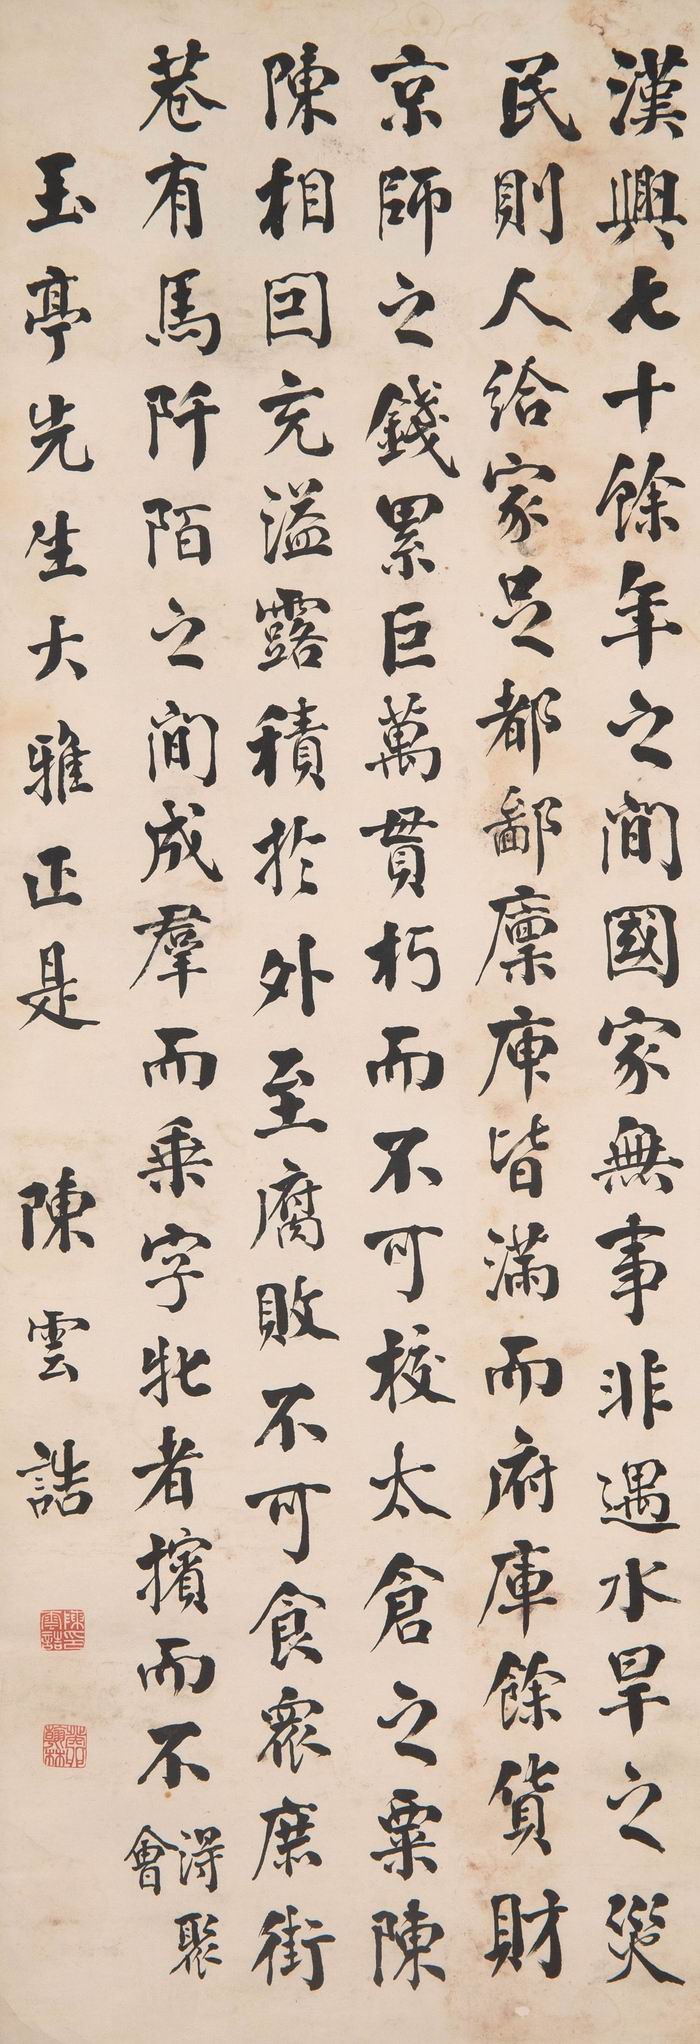 漢興七十餘年之間國家無事非遇水旱之災
民則人給家足都鄙廩庾皆滿而府庫餘貨財
京師之錢累巨萬貫朽而不可校太倉之粟陳
陳相因充溢露積於外至腐敗不可食眾庶街
巷有馬阡陌之間成羣而乘字牝者擯而不得聚會
玉亭先生大雅正是
陳雲誥
陳印雲誥